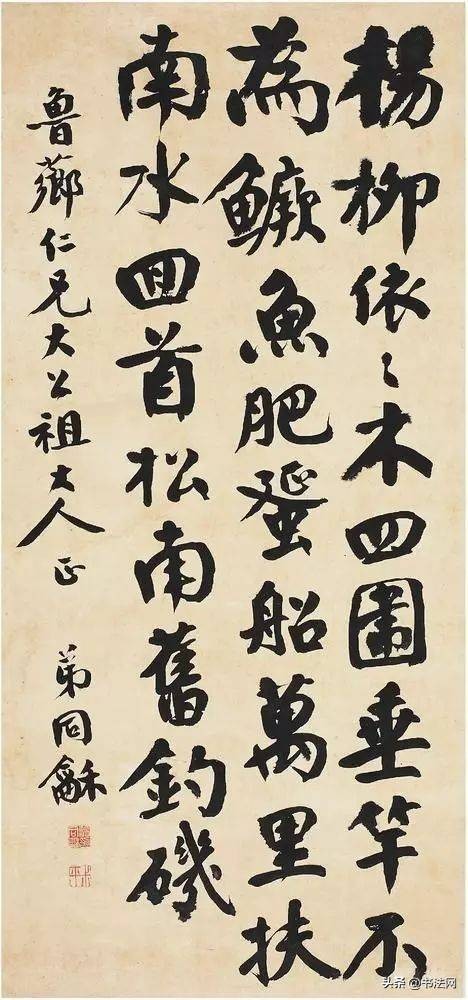 楊柳依〻木四圍垂竿不
為鱖魚肥蜑船萬里扶
南水回首松南舊釣磯
魯薌仁兄大公祖大人正 弟同龢
头条 @书法网